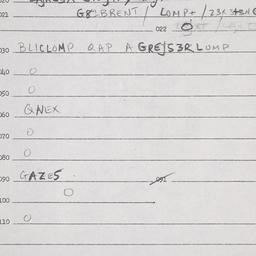 021 G8IBRENT / LOMP+ / 23X
022
030 BLICLOMP QAP A GREJS3RLOMP
040 O
050 O
060 QNEX
070 O
080 O
090 GAZES 091
100 O
110 O